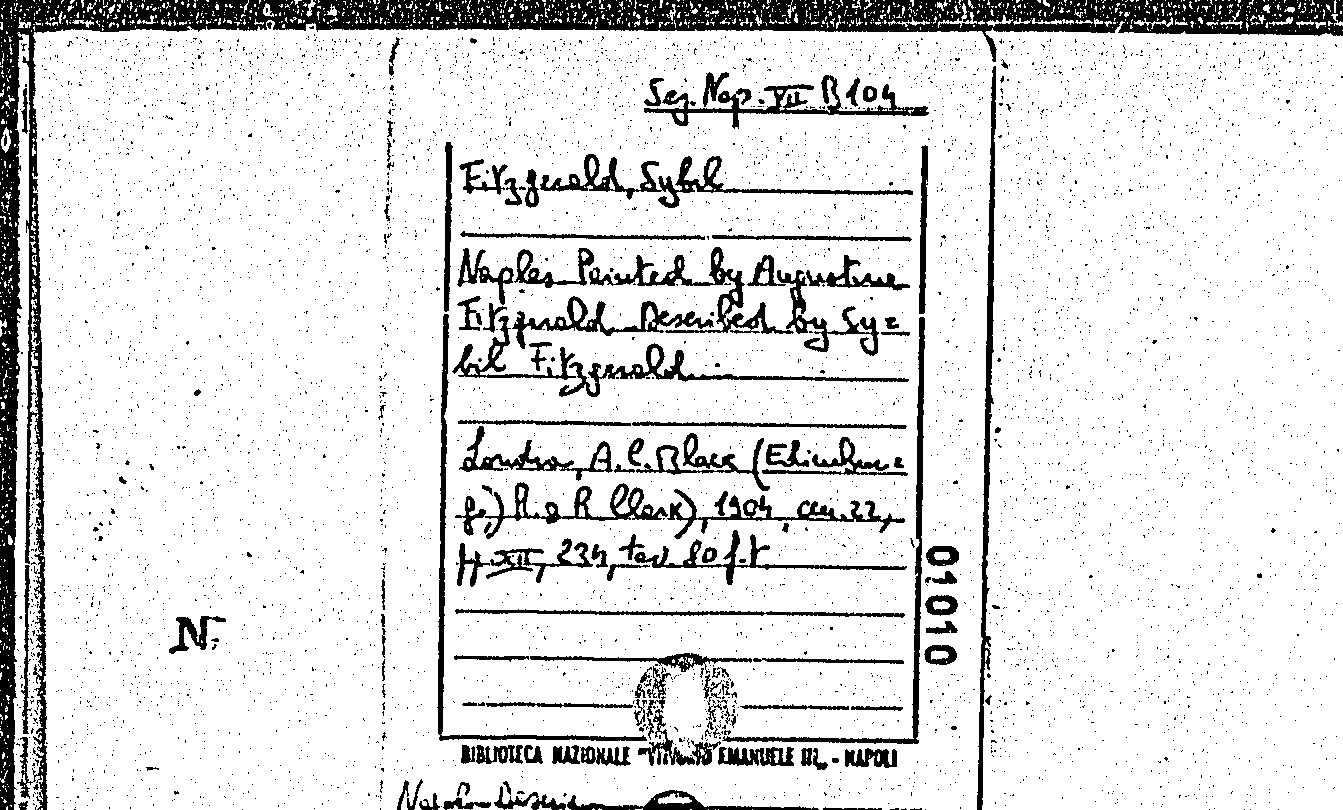 Sez. Nap. VII B 104
Fitzgerald, Sybil
Naples Painted by Augustine
Fitzgerald Described by Sy=
bil Fitzgerald
Londra, A. C. Black (Edimbur=
go,) R. e R. Clark), 1904, cm. 22,
pp. XII, 234, tav. 80 f.t.
01010
N.
BIBLIOTECA NAZIONALE "VITTORIO EMANUELE III" - NAPOLI
Napoli